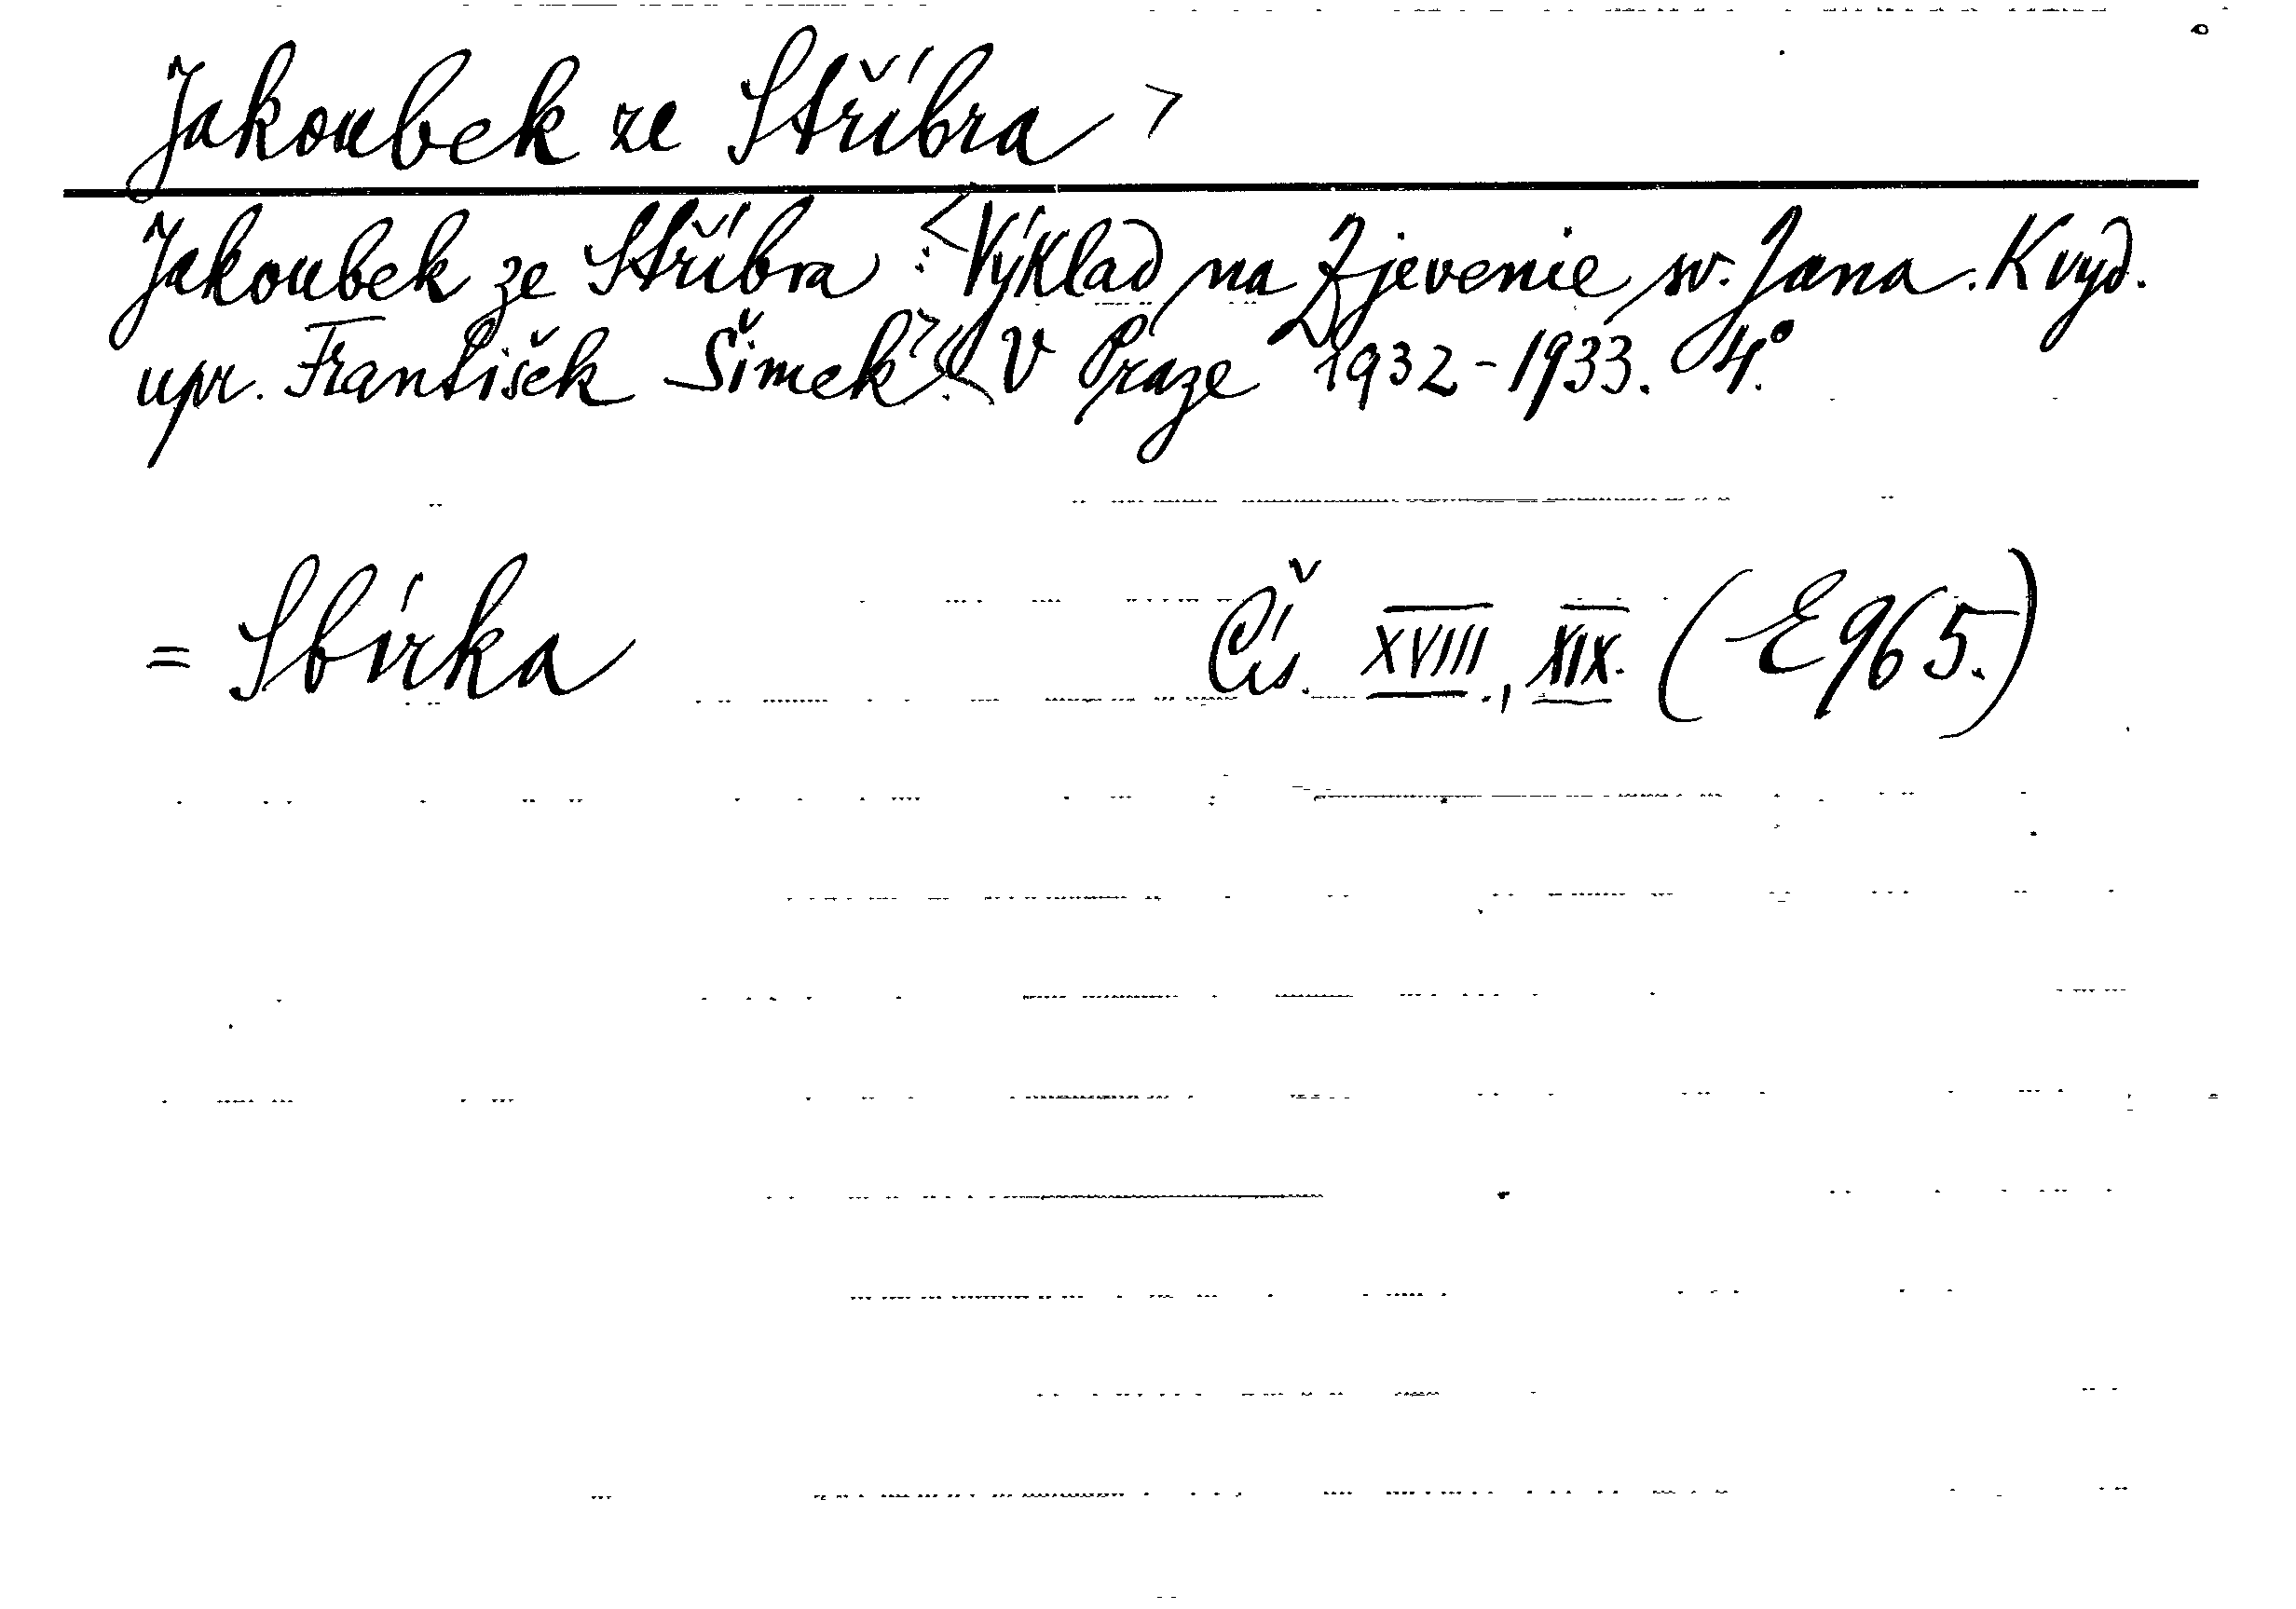 Jakoubek ze Stříbra >
Jakoubek ze Stříbra : < Výklad na Zjevenie sv. Jana. K vyd.
upr. František Šimek. > < V Praze 1932-1933. 4°.
= Sbírka Čís. XVIII., XIX. (E 965.)